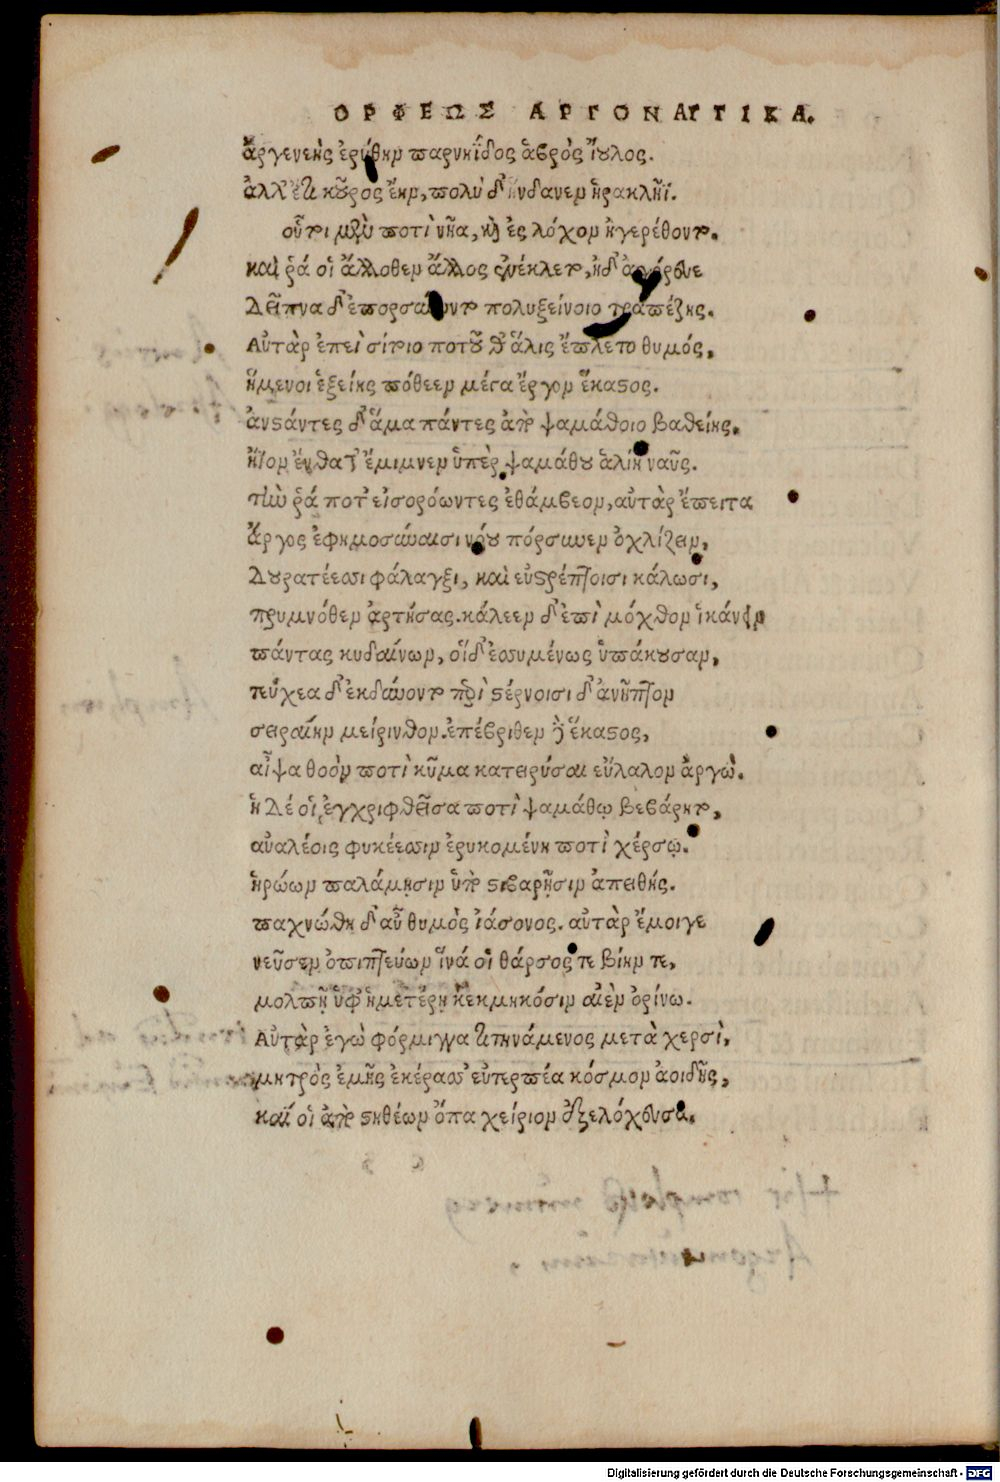 ΟΡΦΕΩΣ ΑΡΓΟΝΑΥΤΙΚΑ.
ἀργενεὴς ἐρύθην παρηίδος ἁβρὸς ἴουλος.
ἀλλ' ἔτι κοῦρος ἔην, πολὺ δ' ἥνδανεν ἡρακλῆϊ.
οὗτοι μὲν ποτὶ νῆα, καὶ ἐς λόχον ἠγερέθοντο.
καὶ ῥά οἱ ἄλλοθεν ἄλλος συνέκλετο, ἠδ' ἀγόρευε
Δεῖπνα δ' ἐπορσαίνοντο πολυξείνοιο τραπέζης.
Αὐτὰρ ἐπεὶ σίτοιο ποτοῦ θ' ἅλις ἔπλετο θυμός,
ἥμενοι ἑξείης πόθεεν μέγα ἔργον ἕκαστος.
ἀνστάντες δ' ἅμα πάντες ἀπὸ ψαμάθοιο βαθείης.
ἤϊον ἔνθα τ' ἔμιμνεν ὑπὲρ ψαμάθου ἁλίη ναῦς.
τὴν ῥά ποτ' εἰσορόωντες ἐθάμβεον, αὐτὰρ ἔπειτα
Ἄργος ἐφημοσύναισι νόου πόρσυνεν ὀχλίζειν,
Δουρατέεσσι φάλαγξι, καὶ εὐστρέπτοισι κάλωσι,
πρυμνόθεν ἀρτήσας. κάλεεν δ' ἐπὶ μόχθον ἱκάνειν
πάντας κυδαίνων, οἱ δ' ἐσσυμένως ὑπάκουσαν,
τεύχεα δ' ἐκδύνοντο περὶ στέρνοισι δ' ἀνῆπτον
σειραίην μείρινθον. ἐπέβριθεν δὲ ἕκαστος,
αἶψα θοὸν ποτὶ κῦμα κατειρύσαι εὔλαλον ἀργώ.
ἡ Δέ οἱ ἐγχριφθεῖσα ποτὶ ψαμάθῳ βεβάρητο,
αὐαλέοις φυκέεσσιν ἐρυκομένη ποτὶ χέρσῳ.
ἡρώων παλάμῃσιν ὑπὸ στιβαρῇσιν ἀπειθής.
παχνώθη δ' αὖ θυμὸς ἰάσονος. αὐτὰρ ἔμοιγε
νεῦσεν ὀπιπτεύων ἵνά οἱ θάρσος τε βίην τε,
μολπῇ ὑφ' ἡμετέρῃ κεκμηκόσιν αἰὲν ὀρίνω.
Αὐτὰρ ἐγὼ φόρμιγγα τιτηνάμενος μετὰ χερσὶ,
μητρὸς ἐμῆς ἐκέρασσ' εὐτερπέα κόσμον ἀοιδῆς,
καί οἱ ἀπὸ στηθέων ὄπα χείριον ἐξελόχευσα.
Digitalisierung gefördert durch die Deutsche Forschungsgemeinschaft - DFG